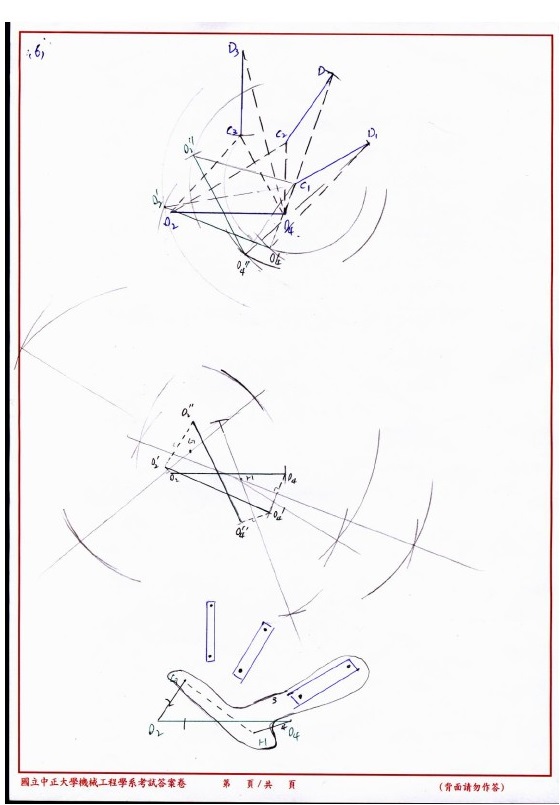 (6)
D3
D2
D1
C3
C2
C1
O2''
O2'
O2
O4
O4'
O4''
O2''
G
O2'
O2
H
O4
O4'
O4''
G
3
2
4
O2
1
H
O4
國立中正大學機械工程學系考試答案卷 第 頁/共 頁 (背面請勿作答)